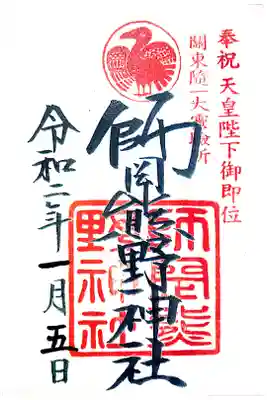 奉祝 天皇陛下御即位
關東隨一大霊験所
師岡熊野神社
師岡熊野神社
令和二年一月五日